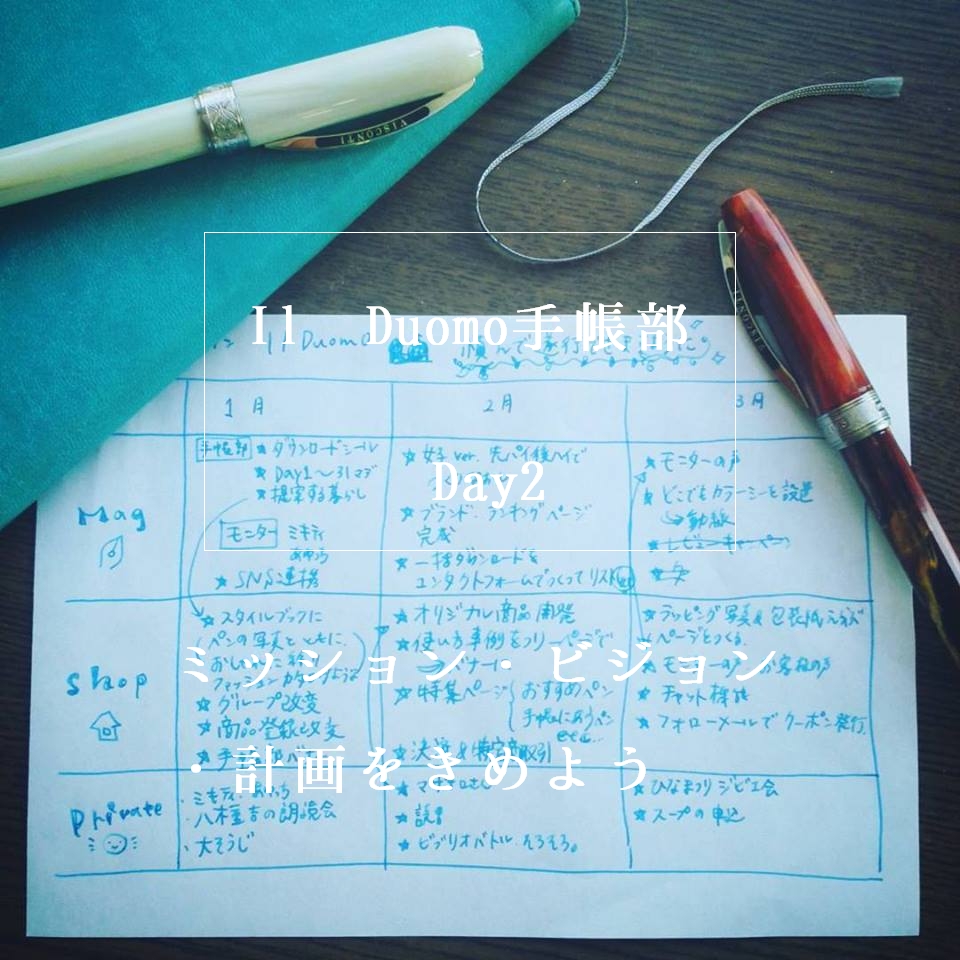 VISCONTI
VISCONTI
Il Duomo手帳部
Day2
ミッション・ビジョン
・計画をきめよう
Il Duomo
1月
2月
3月
Mag
手帳部 ★ダウンロードシール
★Day1〜31マデ
★提案する暮らし
モニター ミキティ
★SNS連携
★女子ver.
★ブランド・ランキングページ
完成
★一括ダウンロードを
コンタクトフォームでつくってリスト
★モニターの声
★どこでもカラーミーを設置
動線
Shop
★スタイルブックに
ペンの写真とともに
★グループ改変
★商品登録改変
★オリジナル商品開発
★使い方事例をフリーページで
バナーに
★特集ページ
おすすめペン
手帳にあうペン
etc...
★ラッピング写真&包装紙
ページをつくる。
★モニターの声
★チャット機能
★フォローメールでクーポン発行。
Private
・八木重吉の朗読会
・大そうじ
★読書
★ビブリオバトル そろそろ。
★ひなまつりジビエ会
★スープの申込